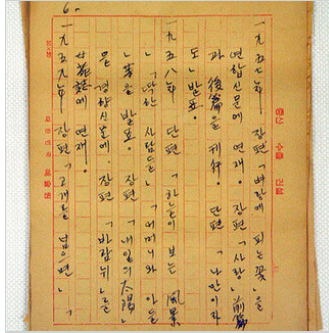 6.
증산 수출 건설
一九五七年 장편 「벼랑에 피는 꽃」을
연합신문에 연재. 장편 「사랑」前篇
과 後篇을 刊行. 단편 「나만이라
도」발표.
一九五八年 단편 「하늘이 보는 風景
」「딱한 사람들」「어머니와 아들
」等을 발표. 장편 「내일의 太陽」
을 경향신문에, 장편 「바람뉘」를
에 연재.
一九五九年 장편 「고개를 넘으면」